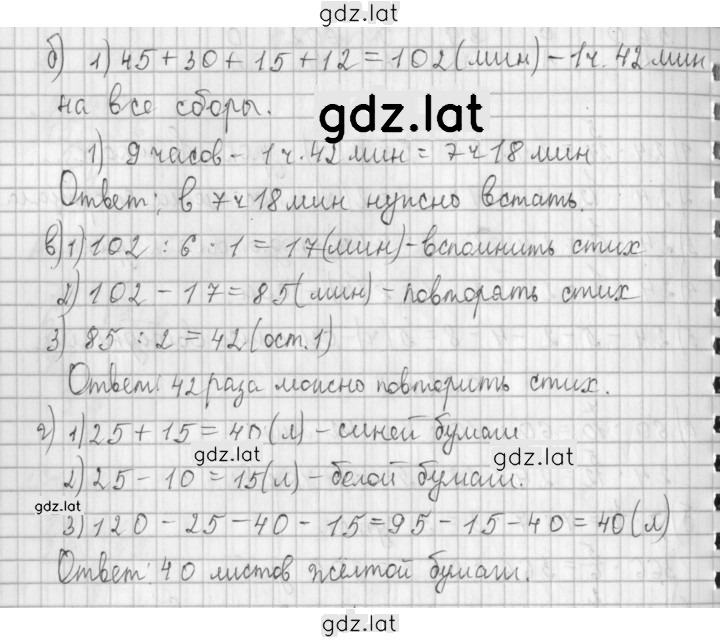 gdz.lat
б) 1) 45 + 30 + 15 + 12 = 102 (мин) - 1 ч. 42 мин
на все сборы.
gdz.lat
1) 9 часов - 1 ч. 42 мин = 7 ч 18 мин
Ответ: в 7 ч 18 мин нужно встать.
в) 1) 102 : 6 · 1 = 17 (мин) - вспомнить стих
2) 102 - 17 = 85 (мин) - повторять стих
3) 85 : 2 = 42 (ост. 1)
Ответ: 42 раза можно повторить стих.
г) 1) 25 + 15 = 40 (л) - синей бумаги
gdz.lat
gdz.lat
2) 25 - 10 = 15 (л) - белой бумаги.
gdz.lat
3) 120 - 25 - 40 - 15 = 95 - 15 - 40 = 40 (л)
Ответ: 40 листов жёлтой бумаги.
gdz.lat